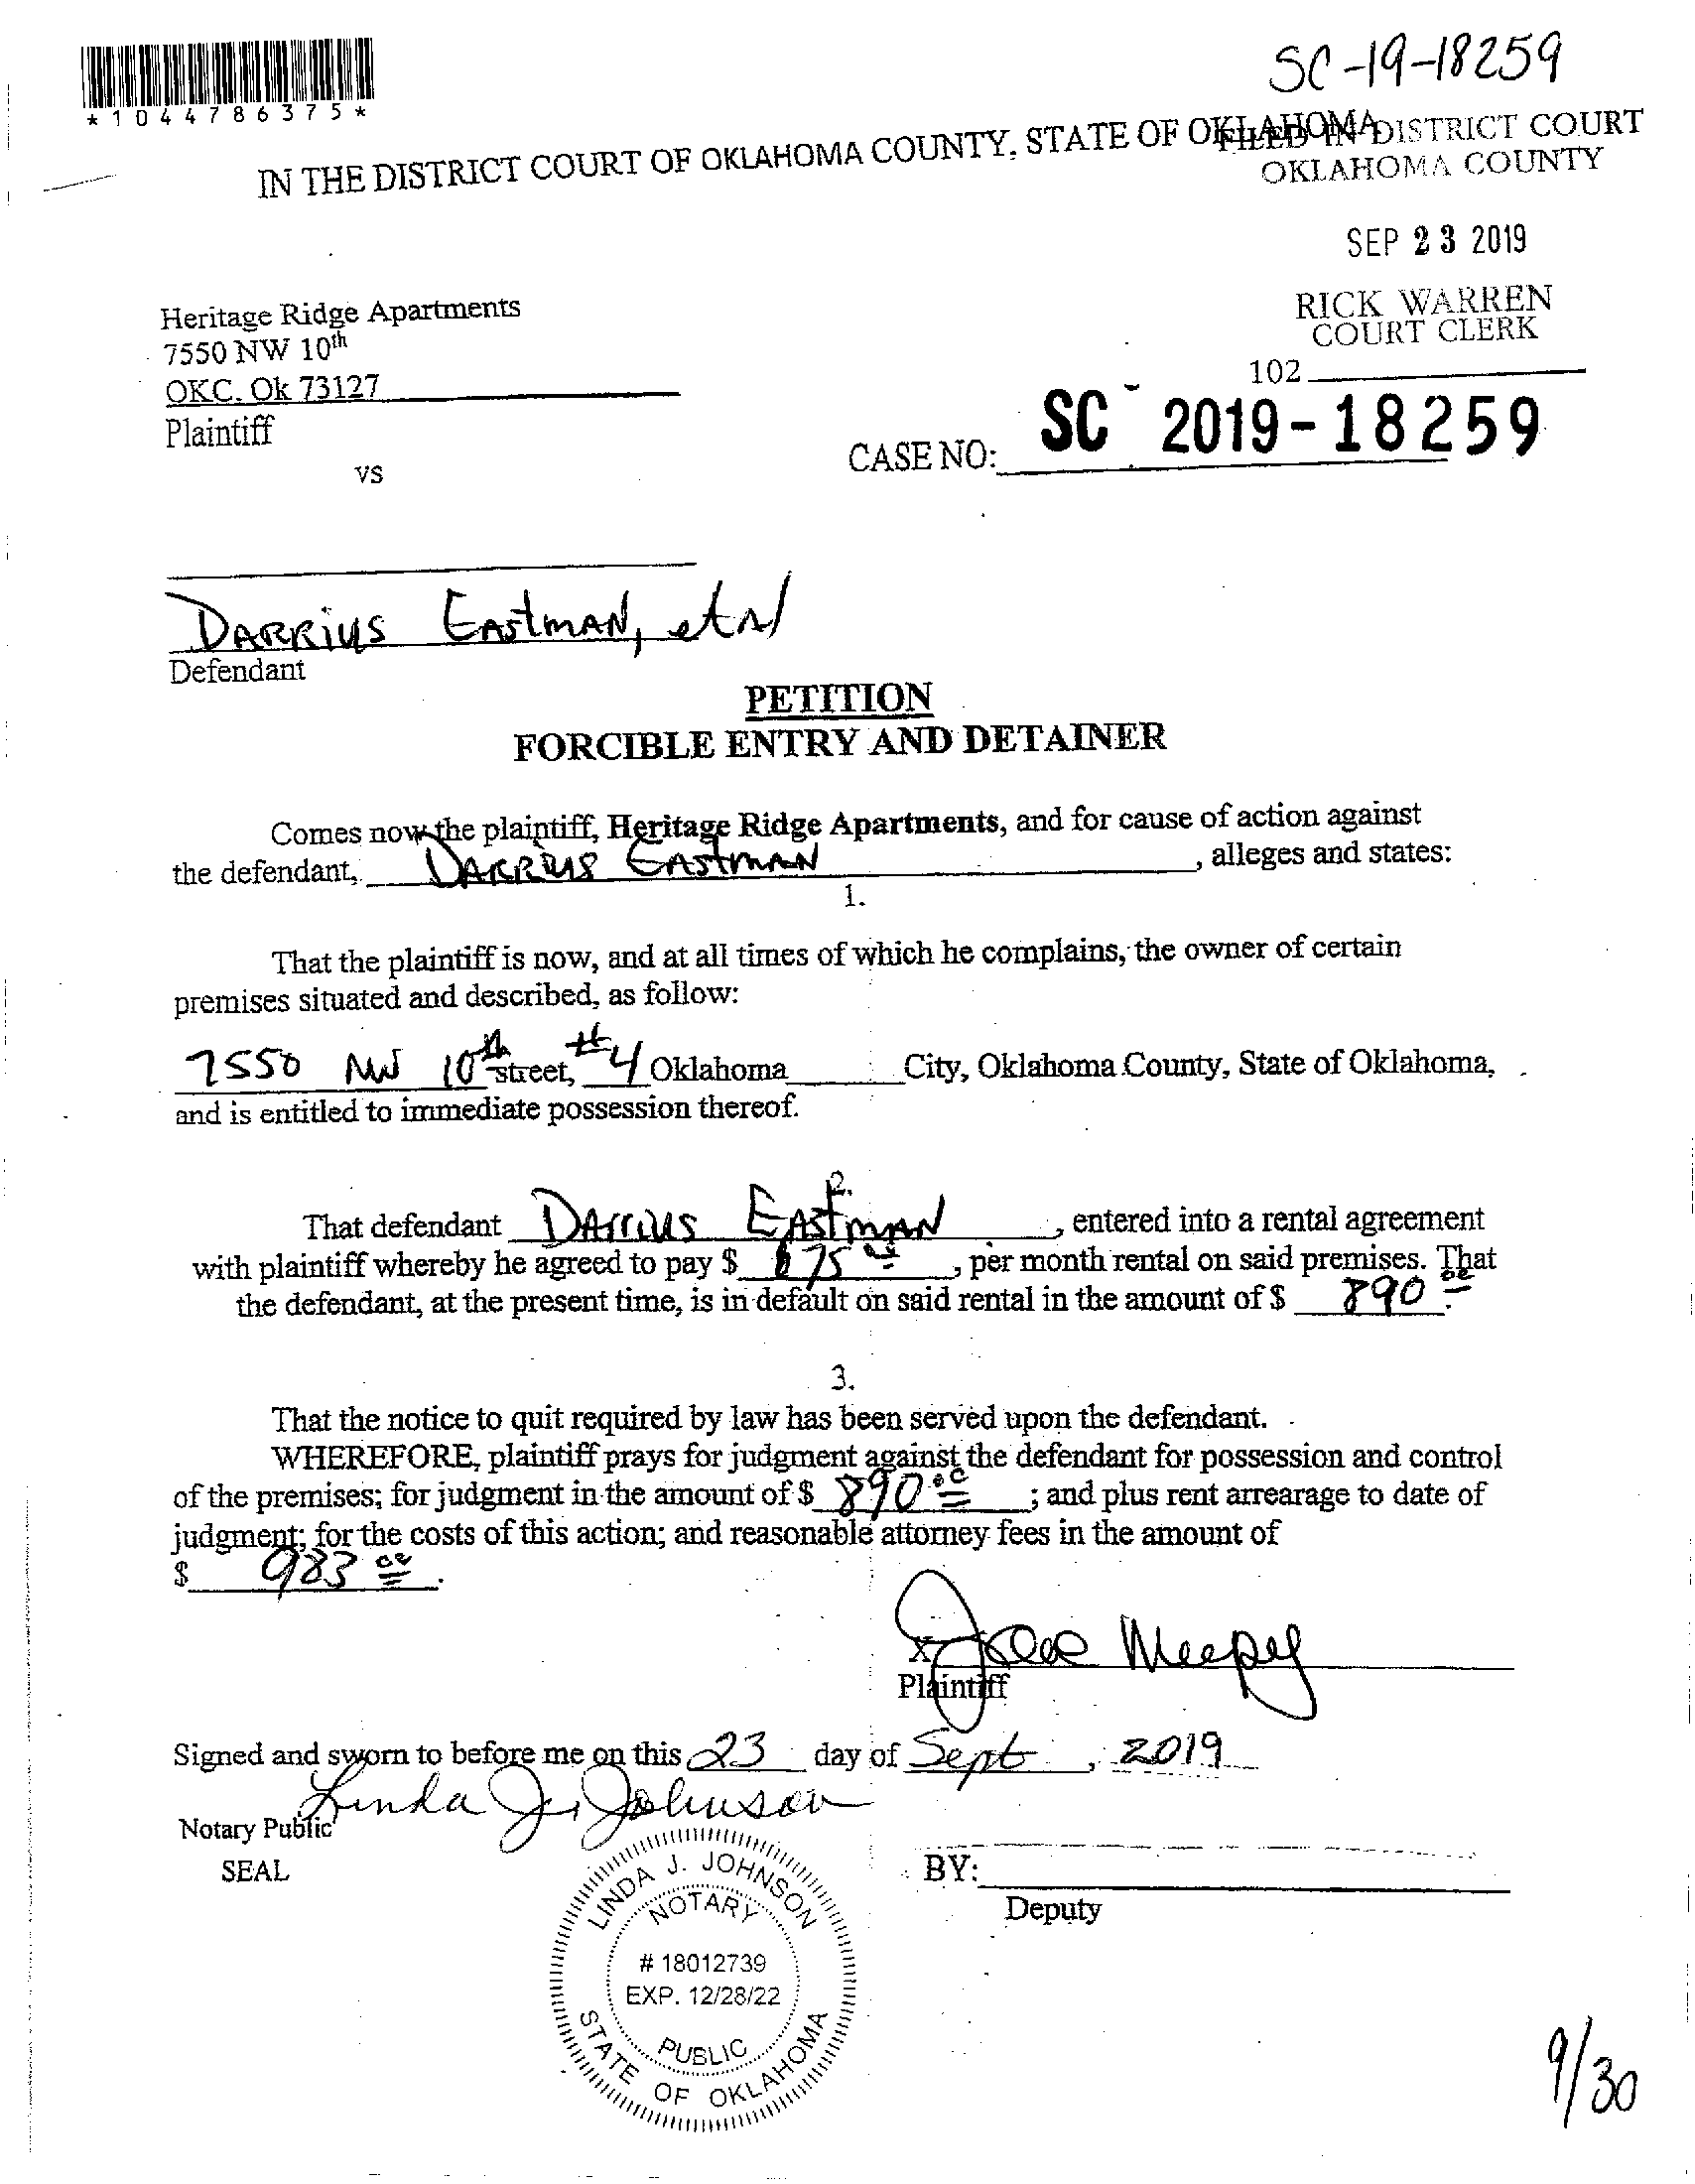 SC-19-18259
*1044786375*
IN THE DISTRICT COURT OF OKLAHOMA COUNTY, STATE OF OKLAHOMA
FILED IN DISTRICT COURT
OKLAHOMA COUNTY
SEP 23 2019
Heritage Ridge Apartments
RICK WARREN
COURT CLERK
7550 NW 10th
102
OKC, Ok 73127
Plaintiff
SC - 2019-18259
CASE NO:
vs
DARRIUS EASTMAN, etal
Defendant
PETITION
FORCIBLE ENTRY AND DETAINER
Comes now the plaintiff, Heritage Ridge Apartments, and for cause of action against
the defendant, DARRIUS EASTMAN, alleges and states:
1.
That the plaintiff is now, and at all times of which he complains, the owner of certain
premises situated and described, as follow:
7550 NW 10th street, #4 Oklahoma City, Oklahoma County, State of Oklahoma,
and is entitled to immediate possession thereof.
2.
That defendant DARRIUS EASTMAN, entered into a rental agreement
with plaintiff whereby he agreed to pay $ , per month rental on said premises. That
the defendant, at the present time, is in default on said rental in the amount of $ 890 00.
3.
That the notice to quit required by law has been served upon the defendant.
WHEREFORE, plaintiff prays for judgment against the defendant for possession and control
of the premises; for judgment in the amount of $ 890 00; and plus rent arrearage to date of
judgment; for the costs of this action; and reasonable attorney fees in the amount of
$ 983 00.
X
Plaintiff
Signed and sworn to before me on this 23 day of Sept, 2019
Linda J. Johnson
Notary Public
SEAL
BY:
Deputy
LINDA J. JOHNSON
NOTARY
# 18012739
EXP. 12/28/22
PUBLIC
STATE OF OKLAHOMA
9/30